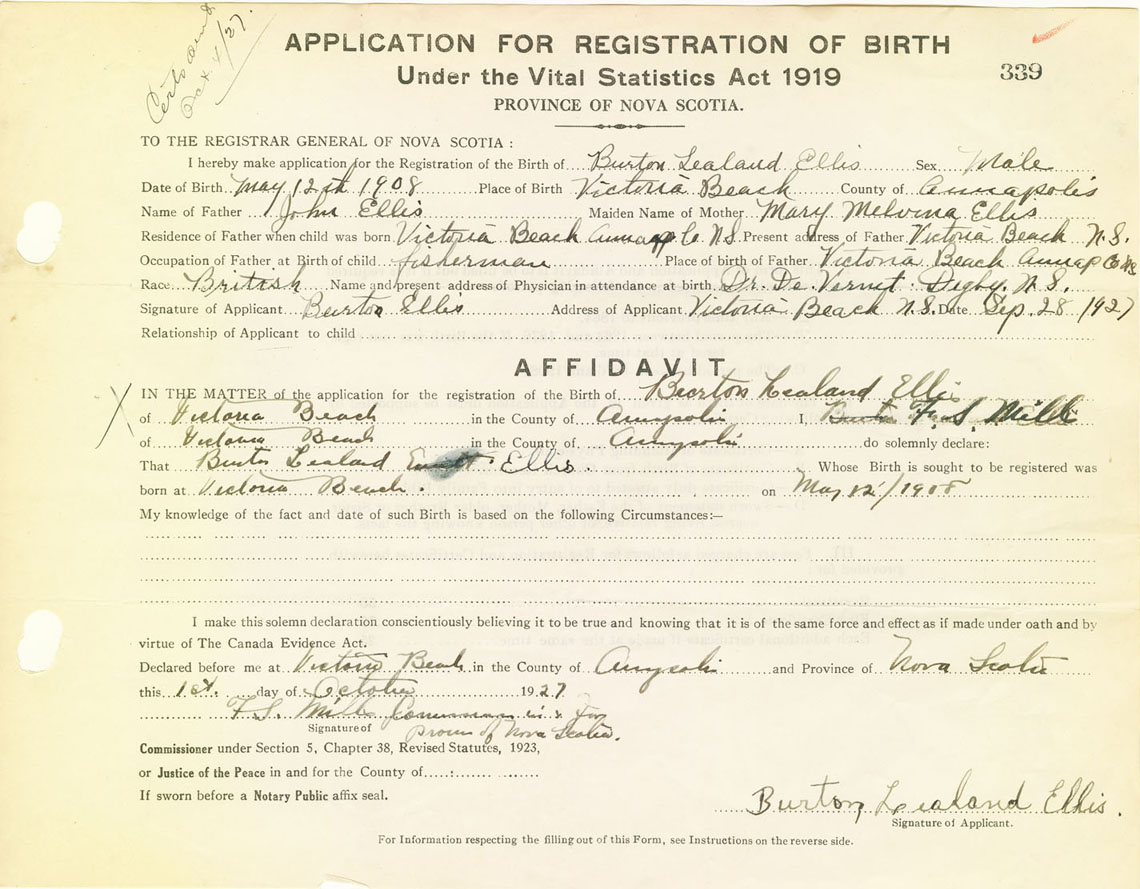 Certs and
Oct 4/27.
APPLICATION FOR REGISTRATION OF BIRTH
Under the Vital Statistics Act 1919
339
PROVINCE OF NOVA SCOTIA.
TO THE REGISTRAR GENERAL OF NOVA SCOTIA :
I hereby make application for the Registration of the Birth of Burton Lealand Ellis Sex Male
Date of Birth May 12th 1908 Place of Birth Victoria Beach County of Annapolis
Name of Father John Ellis Maiden Name of Mother Mary Melvina Ellis
Residence of Father when child was born Victoria Beach Annap Co N.S. Present address of Father Victoria Beach N.S.
Occupation of Father at Birth of child fisherman Place of birth of Father Victoria Beach Annap Co NS
Race British Name and present address of Physician in attendance at birth Dr. De Vernet. Digby. N.S.
Signature of Applicant Burton Ellis Address of Applicant Victoria Beach N.S. Date Sep. 28 1927
Relationship of Applicant to child
AFFIDAVIT
X IN THE MATTER of the application for the registration of the Birth of Burton Lealand Ellis
of Victoria Beach in the County of Annapolis I, F. S. Mills
of Victoria Beach in the County of Annapolis do solemnly declare:
That Burton Lealand Ellis. Whose Birth is sought to be registered was
born at Victoria Beach. on May 12/1908
My knowledge of the fact and date of such Birth is based on the following Circumstances:—
I make this solemn declaration conscientiously believing it to be true and knowing that it is of the same force and effect as if made under oath and by
virtue of The Canada Evidence Act.
Declared before me at Victoria Beach in the County of Annapolis and Province of Nova Scotia
this 1st. day of October 1927
F. S. Mills Commissioner in & for
Signature of provinc of Nova Scotia.
Commissioner under Section 5, Chapter 38, Revised Statutes, 1923,
or Justice of the Peace in and for the County of
If sworn before a Notary Public affix seal.
Burton Lealand Ellis.
Signature of Applicant.
For Information respecting the filling out of this Form, see Instructions on the reverse side.